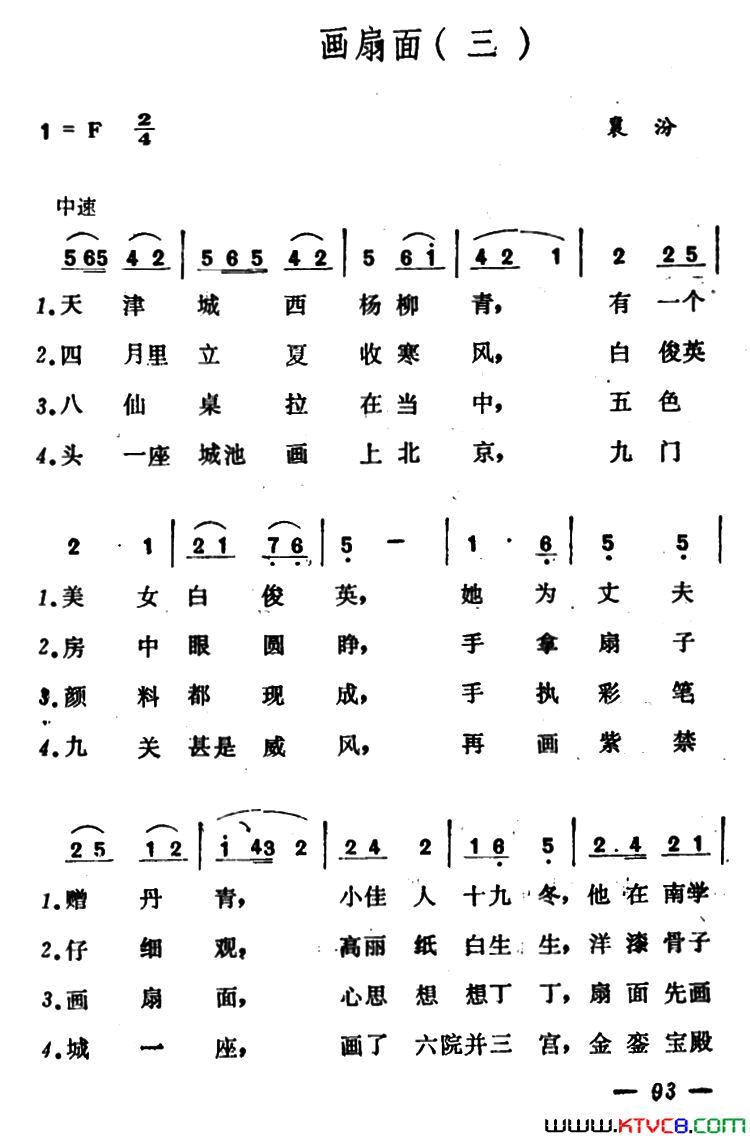 画扇面(三)
1=F 2/4 襄汾
中速
565 42 | 565 42 | 5 6i | 42 1 | 2 25 |
1.天津城西杨柳青，有一个
2.四月里立夏收寒风，白俊英
3.八仙桌拉在当中，五色
4.头一座城池画上北京，九门
2 · 1 | 21 76 | 5 - | 1 · 6 | 5 5 |
1.美女白俊英，她为丈夫
2.房中眼圆睁，手拿扇子
3.颜料都现成，手执彩笔
4.九关甚是威风，再画紫禁
25 12 | i 43 2 | 24 2 | 16 5 | 2.4 21 |
1.赠丹青，小佳人十九冬，他在南学
2.仔细观，高丽纸白生生，洋漆骨子
3.画扇面，心思想想丁丁，扇面先画
4.城一座，画了六院并三宫，金銮宝殿
— 93 —
www.KTVC8.com